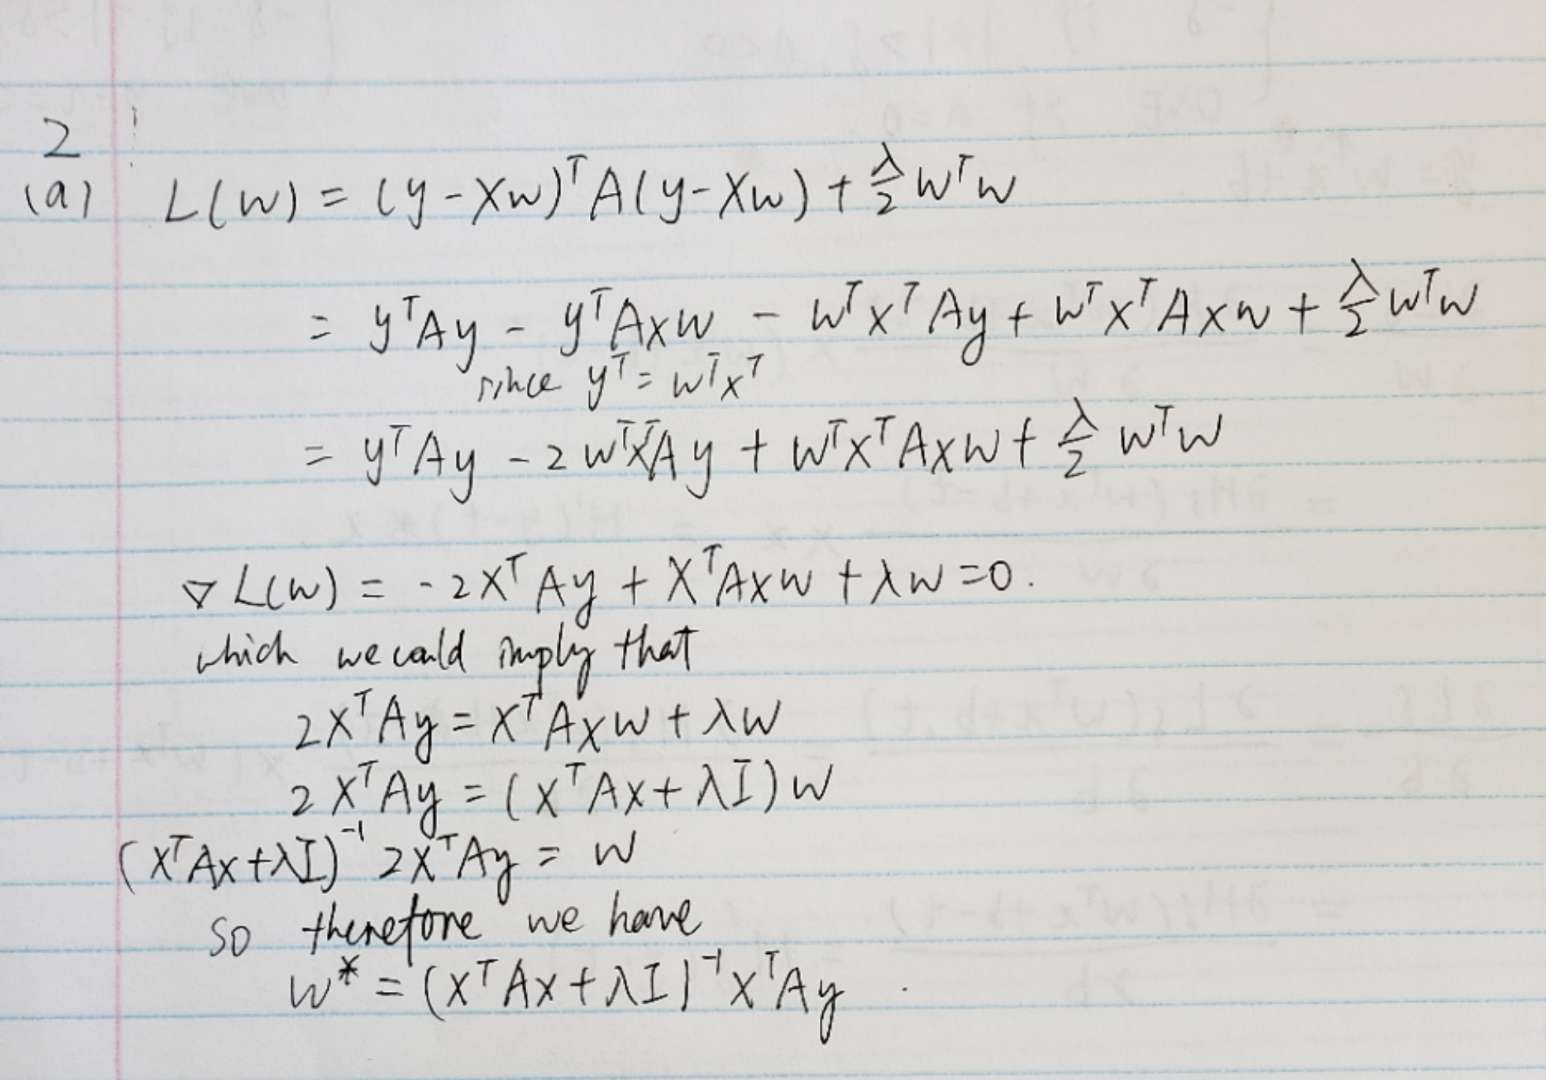 2
(a) L(w) = (y-Xw)ᵀA(y-Xw) + λ/2 wᵀw
= yᵀAy - yᵀAxw - wᵀxᵀAy + wᵀxᵀAxw + λ/2 wᵀw
since yᵀ = wᵀxᵀ
= yᵀAy - 2wᵀxᵀAy + wᵀxᵀAxw + λ/2 wᵀw
∇L(w) = -2xᵀAy + XᵀAxw + λw = 0.
which we could imply that
2xᵀAy = xᵀAxw + λw
2xᵀAy = (xᵀAx + λI)w
(xᵀAx + λI)⁻¹ 2xᵀAy = w
so therefore we have
w* = (xᵀAx + λI)⁻¹xᵀAy .